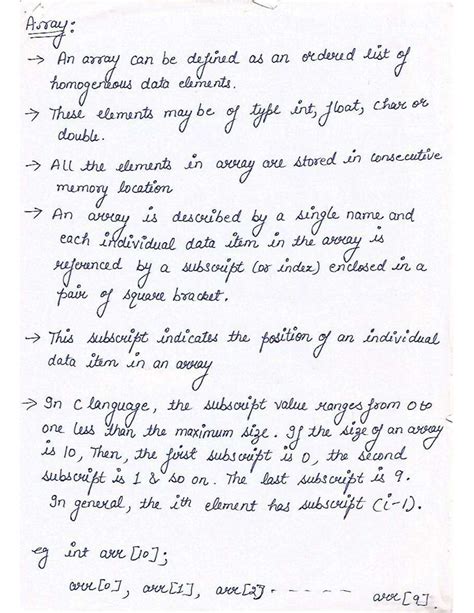 Array:
→ An array can be defined as an ordered list of
homogeneous data elements.
→ These elements may be of type int, float, char or
double.
→ All the elements in array are stored in consecutive
memory location
→ An array is described by a single name and
each individual data item in the array is
referenced by a subscript (or index) enclosed in a
pair of square bracket.
→ This subscript indicates the position of an individual
data item in an array
→ In C language, the subscript value ranges from 0 to
one less than the maximum size. If the size of an array
is 10, Then, the first subscript is 0, the second
subscript is 1 & so on. The last subscript is 9.
In general, the ith element has subscript (i-1).
eg int arr [10];
arr[0], arr[1], arr[2] - - - - - arr[9].